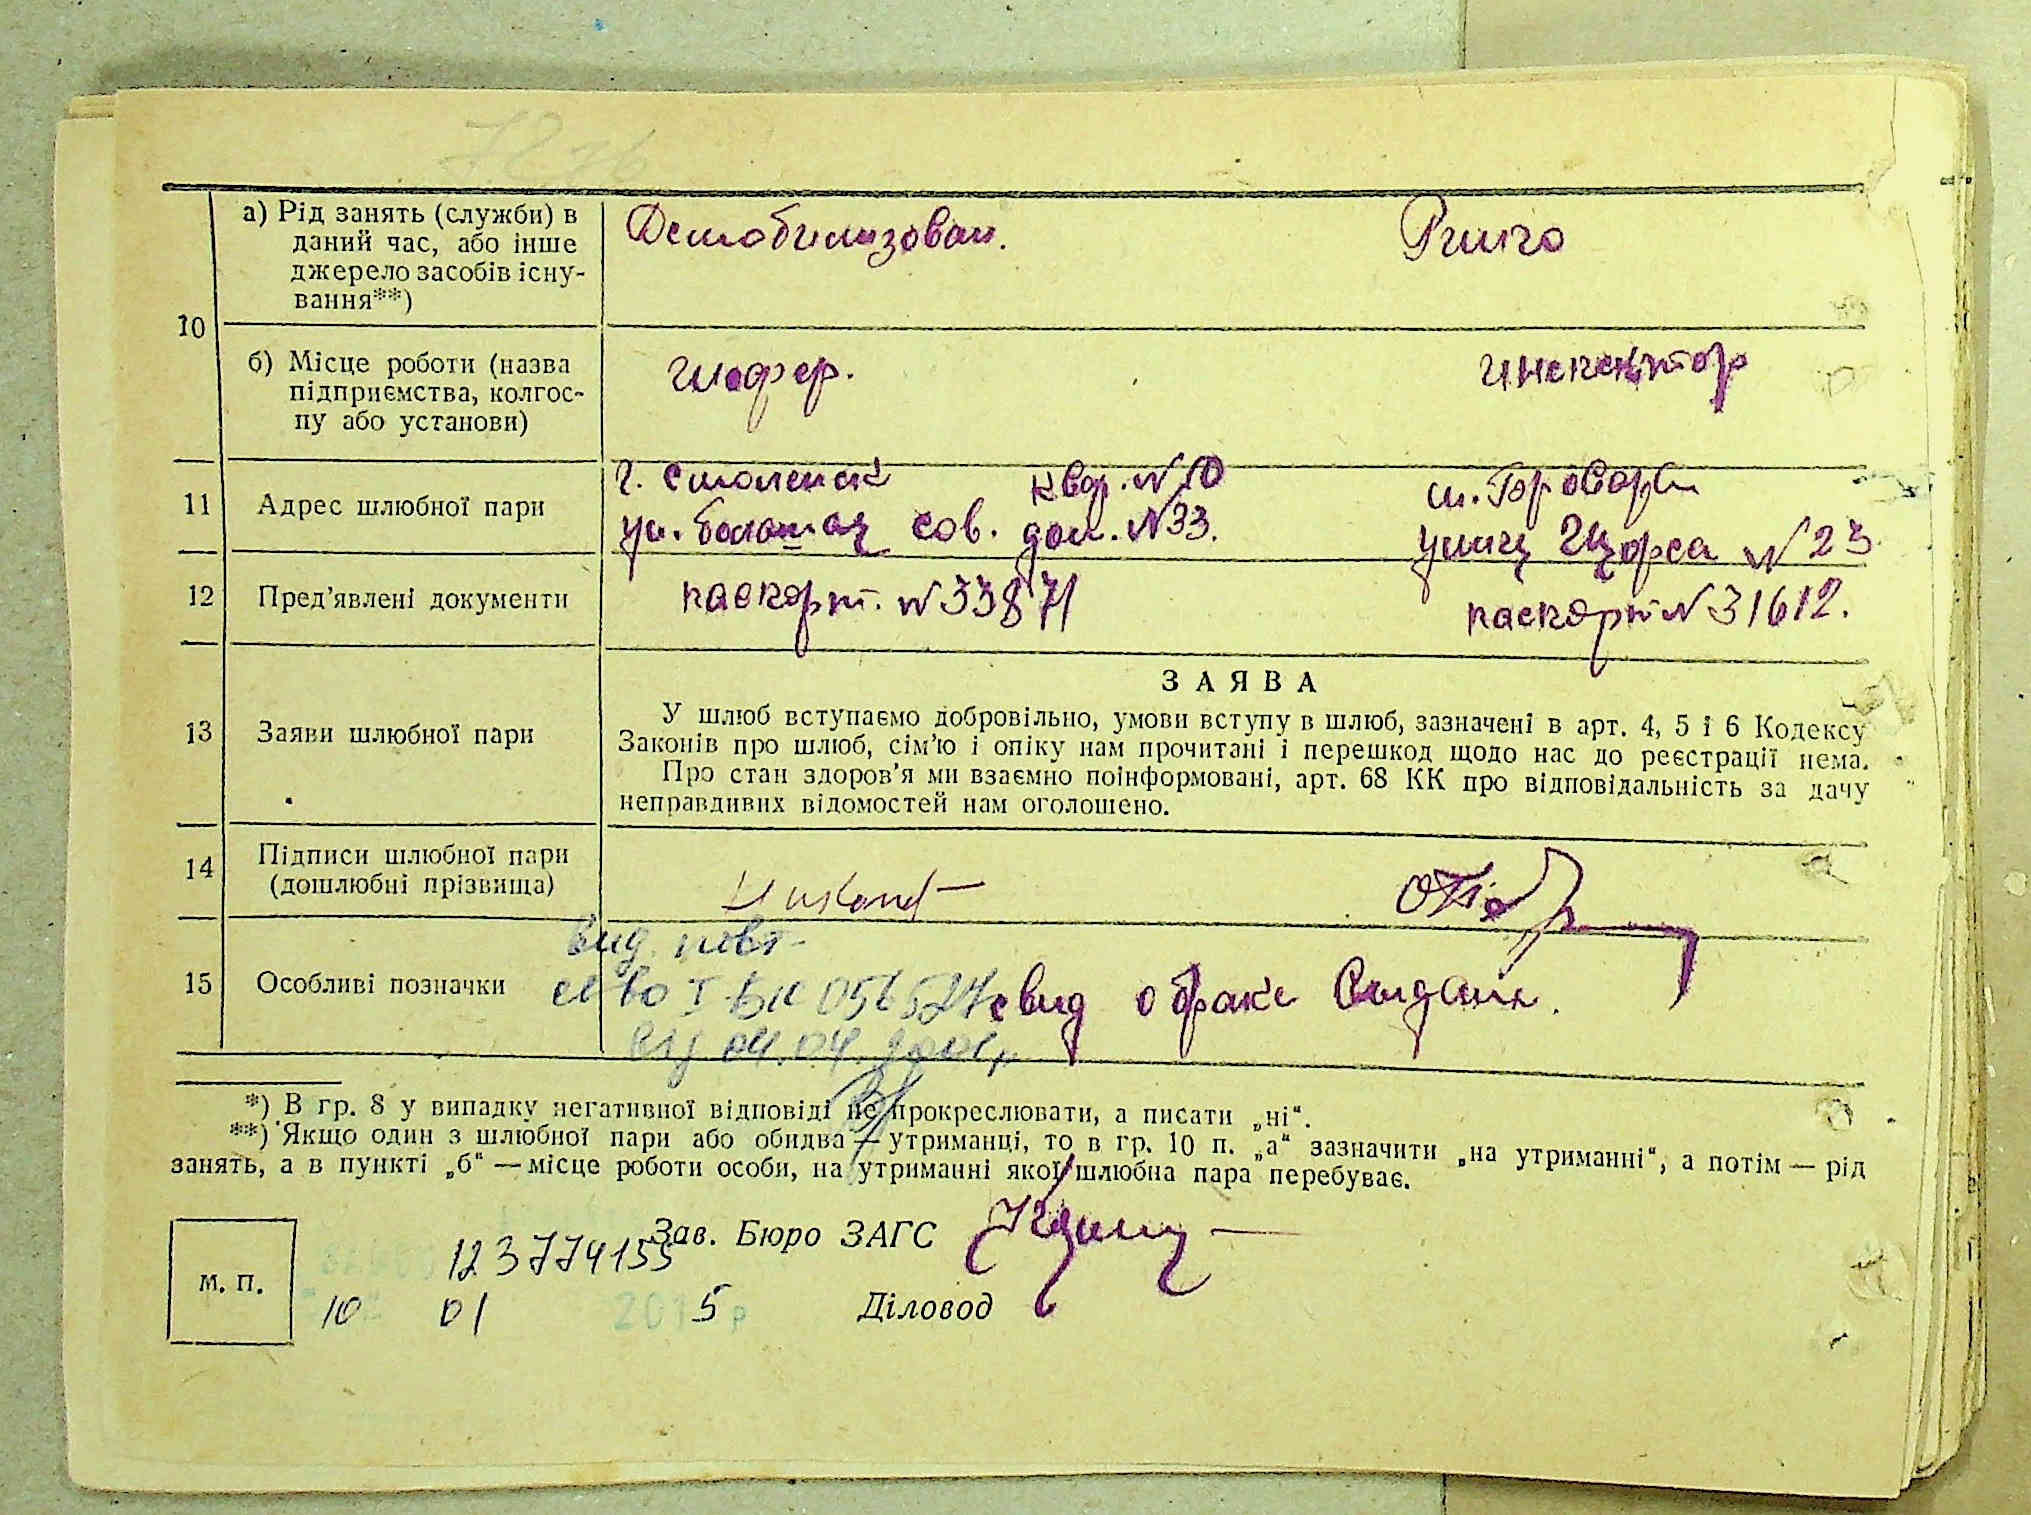 10
а) Рід занять (служби) в
даний час, або інше
джерело засобів існу-
вання**)
Демобилизован.
б) Місце роботи (назва
підприємства, колгос-
пу або установи)
шофер.
инспектор
11
Адрес шлюбної пари
г. Смоленск квар. N 10
ул. Большая сов. дом. N 33.
Щорса N 23
12
Пред'явлені документи
паспорт. N 33871
паспорт N 31612.
13
Заяви шлюбної пари
ЗАЯВА
У шлюб вступаємо добровільно, умови вступу в шлюб, зазначені в арт. 4, 5 і 6 Кодексу
Законів про шлюб, сім'ю і опіку нам прочитані і перешкод щодо нас до реєстрації нема.
Про стан здоров'я ми взаємно поінформовані, арт. 68 КК про відповідальність за дачу
неправдивих відомостей нам оголошено.
14
Підписи шлюбної пари
(дошлюбні прізвища)
15
Особливі позначки
вид. повт.
св-во I-БК 056527
04.04.2001р
свид о браке
*) В гр. 8 у випадку негативної відповіді не прокреслювати, а писати „ні“.
**) Якщо один з шлюбної пари або обидва — утриманці, то в гр. 10 п. „а“ зазначити „на утриманні“, а потім — рід
занять, а в пункті „б“ — місце роботи особи, на утриманні якої шлюбна пара перебуває.
Зав. Бюро ЗАГС
123774155
м. п.
10 01 2015 р
Діловод